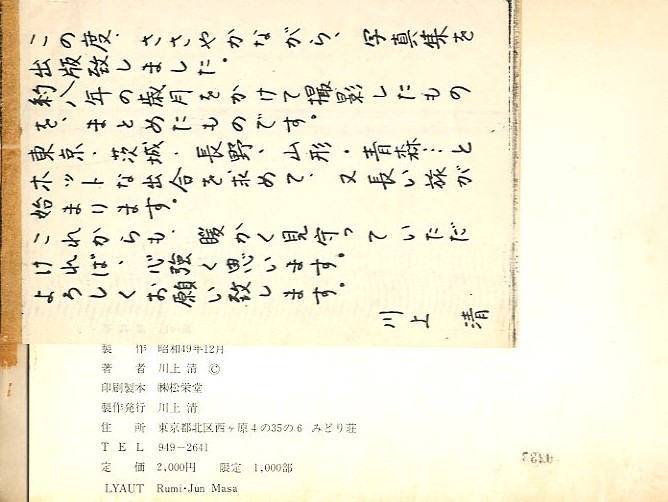 この度、ささやかながら、写真集を
出版致しました。
約八年の歳月をかけて撮影したもの
を、まとめたものです。
東京・茨城・長野・山形・青森…と
ホットな出合を求めて、又長い旅が
始まります。
これからも、暖かく見守っていただ
ければ、心強く思います。
よろしくお願い致します。
川上 清
製 作 昭和49年12月
著 者 川上 清 ©
印刷製本 ㈱松栄堂
製作発行 川上 清
住 所 東京都北区西ヶ原4の35の6 みどり荘
T E L 949-2641
定 価 2,000円 限定 1,000部
LYAUT Rumi・Jun Masa